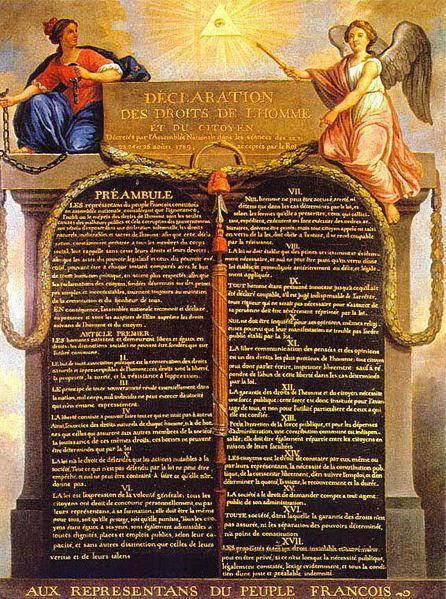 DÉCLARATION
DES DROITS DE L'HOMME
ET DU CITOYEN,
Décrétés par l'Assemblée Nationale dans les séances des 20, 21
23, 24 et 26 août 1789, acceptés par le Roi
PRÉAMBULE
LES représentans du peuple François, constitués
en assemblée nationale, considérant que l'ignorance,
l'oubli ou le mépris des droits de l'homme sont les seules
causes des malheurs publics et de la corruption des gouvernemens
ont résolu d'exposer dans une déclaration solemnelle, les droits
naturels, inaliénables et sacrés de l'homme; afin que cette décla-
ration, constamment présente à tous les membres du corps
social, leur rappelle sans cesse leurs droits et leurs devoirs;
afin que les actes du pouvoir législatif et ceux du pouvoir exé-
cutif, pouvant être à chaque instant comparés avec le but
de toute institution politique, en soient plus respectés; afin que
les réclamations des citoyens, fondées désormais sur des princi-
pes simples et incontestables, tournent toujours au maintien
de la constitution et du bonheur de tous.
EN conséquence, l'assemblée nationale reconnoît et déclare,
en présence et sous les auspices de l'Etre suprême les droits
suivans de l'homme et du citoyen.
ARTICLE PREMIER.
LES hommes naissent et demeurent libres et égaux en
droits; les distinctions sociales ne peuvent être fondées que sur
l'utilité commune.
II.
LE but de toute association politique est la conservation des droits
naturels et imprescriptibles de l'homme; ces droits sont la liberté,
la propriété, la sureté, et la résistance à l'oppression.
III.
LE principe de toute souveraineté réside essentiellement dans
la nation, nul corps, nul individu ne peut exercer d'autorité
qui n'en émane expressément.
IV.
LA liberté consiste à pouvoir faire tout ce qui ne nuit pas à autrui
Ainsi, l'exercice des droits naturels de chaque homme, n'a de bor-
nes que celles qui assurent aux autres membres de la société
la jouissance de ces mêmes droits; ces bornes ne peuvent
être déterminées que par la loi
V.
LA loi n'a le droit de défendre que les actions nuisibles à la
société. Tout ce qui n'est pas défendu par la loi ne peut être
empêché, et nul ne peut être contraint à faire ce qu'elle n'or-
donne pas.
VI.
LA loi est l'expression de la volonté générale; tous les
citoyens ont droit de concourir personnellement, ou par
leurs représentans, à sa formation; elle doit être la même
pour tous, soit qu'elle protège, soit qu'elle punisse. Tous les ci-
toyens étant égaux à ses yeux, sont également admissibles à
toutes dignités, places et emplois publics, selon leur ca-
pacité, et sans autres distinction que celles de leurs
vertus et de leurs talens
VII.
NUL homme ne peut être accusé, arrêté ni
détenu que dans les cas déterminés par la loi, et
selon les formes qu'elle a prescrites, ceux qui sollici-
tent, expédient, exécutent ou font exécuter des ordres ar-
bitraires, doivent être punis; mais tout citoyen appelé ou saisi
en vertu de la loi, doit obéir à l'instant, il se rend coupable
par la résistance.
VIII.
LA loi ne doit établir que des peines strictement et évidemment
nécessaire, et nul ne peut être puni qu'en vertu d'une
loi établie et promulguée antérieurement au délit, et légale-
ment appliquée.
IX.
TOUT homme étant présumé innocent jusqu'à ce qu'il ait
été déclaré coupable, s'il est jugé indispensable de l'arrêter,
toute rigueur qui ne serait pas nécessaire pour s'assurer de
sa personne doit être sévèrement réprimée par la loi.
X.
NUL ne doit être inquiété pour ses opinions, mêmes religi-
euses pourvu que leur manifestation ne trouble pas l'ordre
public établi par la loi.
XI.
LA libre communication des pensées et des opinions
est un des droits les plus précieux de l'homme; tout citoyen
peut donc parler écrire, imprimer librement, sauf à ré-
pondre de l'abus de cette liberté dans les cas déterminés
par la loi.
XII.
LA garantie des droits de l'homme et du citoyen nécessite
une force publique; cette force est donc instituée pour l'avan-
tage de tous, et non pour l'utilité particulière de ceux à qui
elle est confiée.
XIII.
POUR l'entretien de la force publique, et pour les dépenses
d'administration, une contribution commune est indispen-
sable; elle doit être également répartie entre les citoyens en
raison de leurs facultés.
XIV.
LES citoyens ont le droit de constater par eux même ou
par leurs représentans, la nécessité de la contribution pub-
lique, de la consentir librement, d'en suivre l'emploi, et d'en
déterminer la quotité, l'assiette, le recouvrement et la durée.
XV.
LA société a le droit de demander compte à tout agent
public de son administration.
XVI.
TOUTE société, dans laquelle la garantie des droits n'est
pas assurée, ni les séparation des pouvoirs déterminée,
n'a point de constitution
XVII.
LES propriétés étant un droit inviolable et sacré, nul ne
peut en être privé, si ce n'est lorsque la nécessité publique,
légalement constatée, l'exige évidemment, et sous la condi-
tion d'une juste et préalable indemnité.
AUX REPRESENTANS DU PEUPLE FRANCOIS